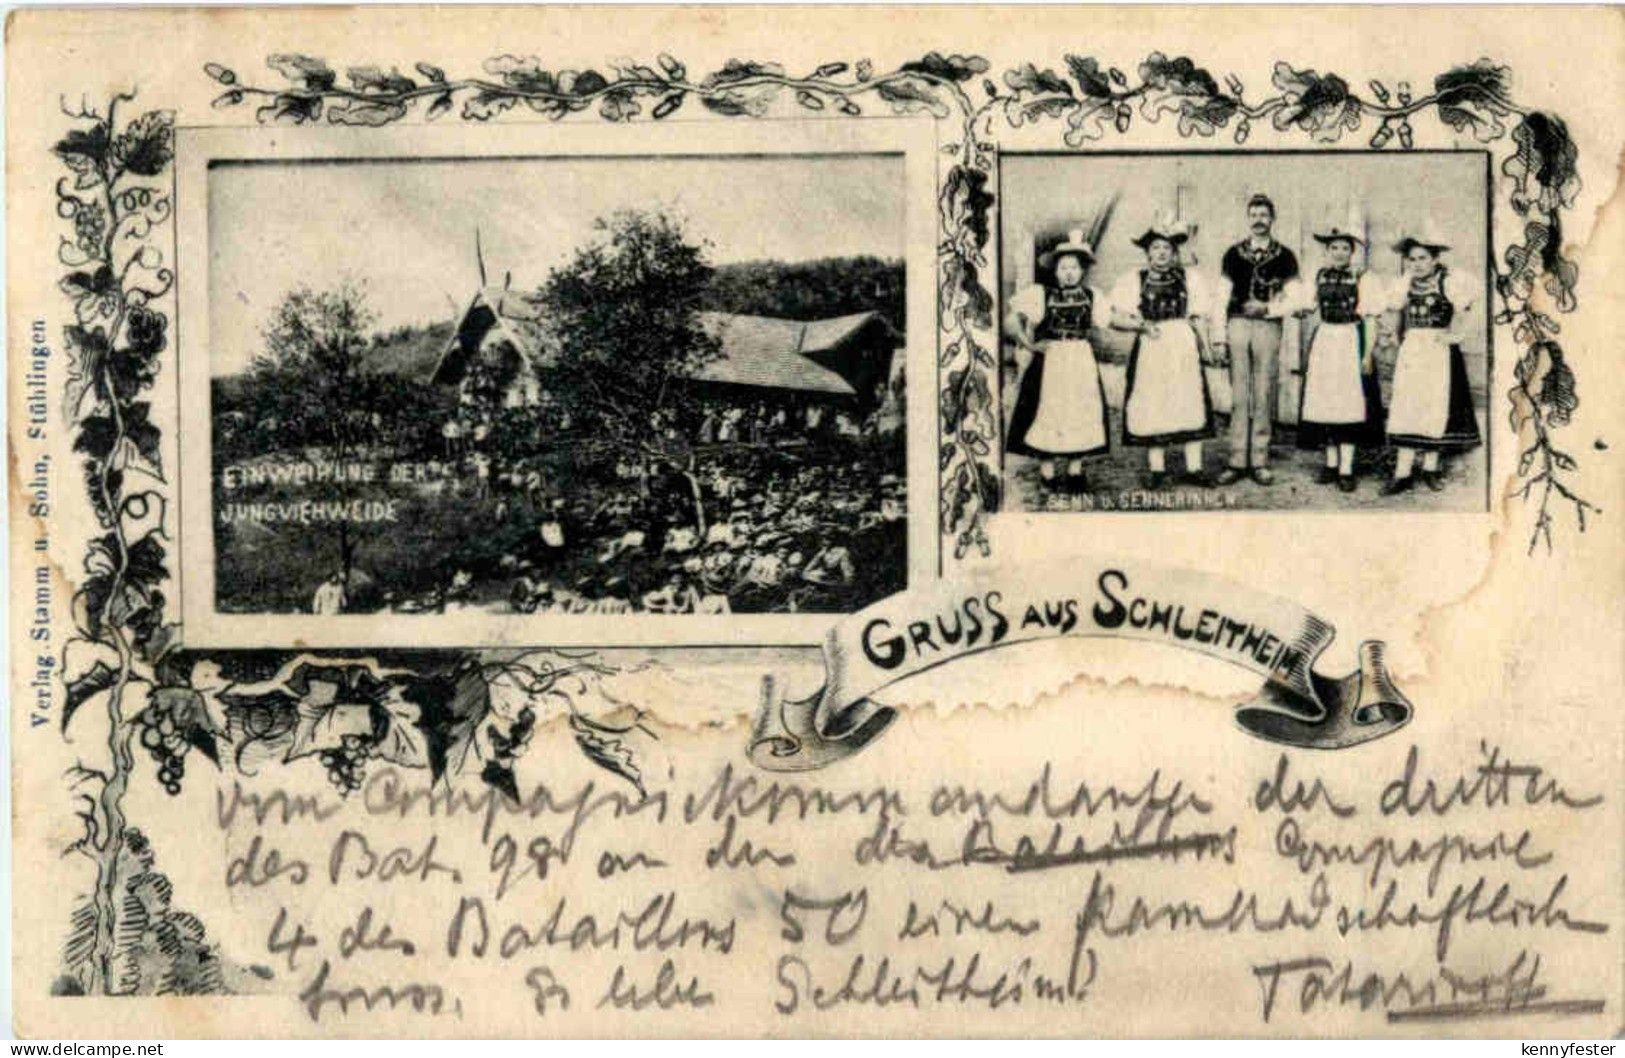 Verlag. Stamm u. Sohn, Stühlingen
EINWEIHUNG DER
JUNGVIEHWEIDE
SENN U. SENNERINNEN
GRUSS AUS SCHLEITHEIM
vom Compagniekommandanten der dritten
des Bat. 98 an den Compagnie
4 des Bataillons 50 einen Kameradschaftlich
Gruss. Es lebe Schleitheim!
kennyfester